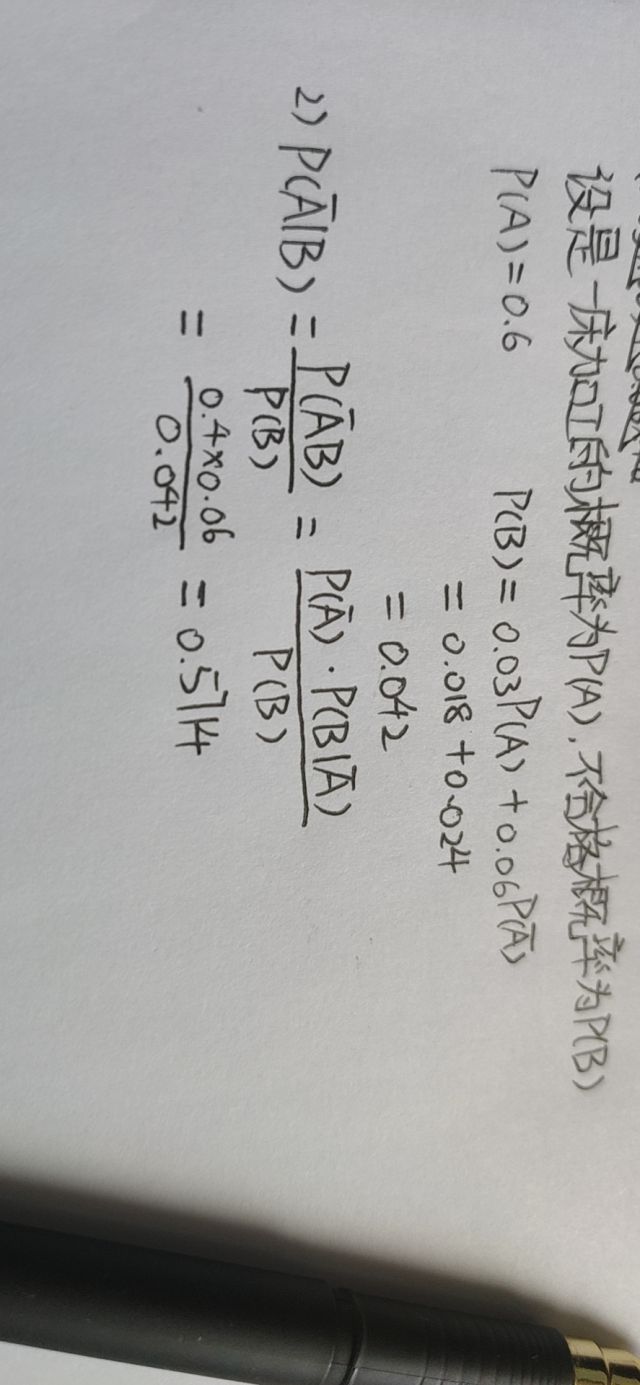 设是一床加工的概率为P(A), 不合格概率为P(B)
P(A) = 0.6 P(B) = 0.03P(A) + 0.06P(Ā)
= 0.018 + 0.024
= 0.042
2) P(Ā|B) = P(ĀB)/P(B) = P(Ā)·P(B|Ā)/P(B)
= 0.4×0.06/0.042 = 0.5714